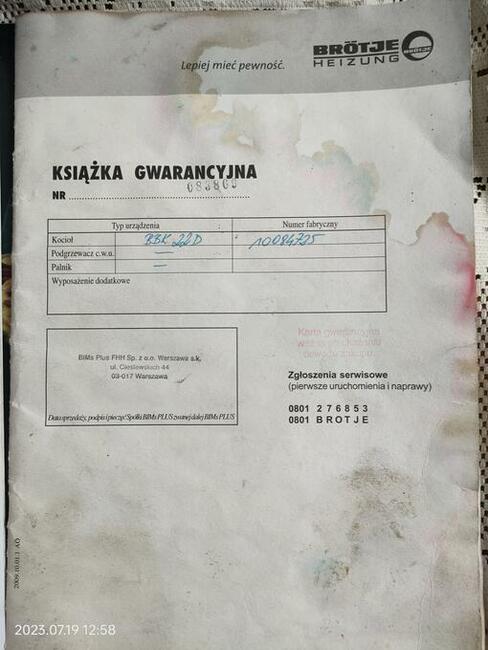 Lepiej mieć pewność.
BRÖTJE
HEIZUNG
BRÖTJE
KSIĄŻKA GWARANCYJNA
NR 083860
Typ urządzenia Numer fabryczny
Kocioł BBK 22D 10084725
Podgrzewacz c.w.u. —
Palnik —
Wyposażenie dodatkowe
BIMs Plus FHH Sp. z o.o. Warszawa s.k.
ul. Cieślewskich 44
03-017 Warszawa
Data sprzedaży, podpis i pieczęć Spółki BIMs PLUS zwanej dalej BIMs PLUS
Karta gwarancyjna
ważna po okazaniu
dowodu zakupu.
Zgłoszenia serwisowe
(pierwsze uruchomienia i naprawy)
0801 276853
0801 BROTJE
2009.10.01.1 AO
2023.07.19 12:58